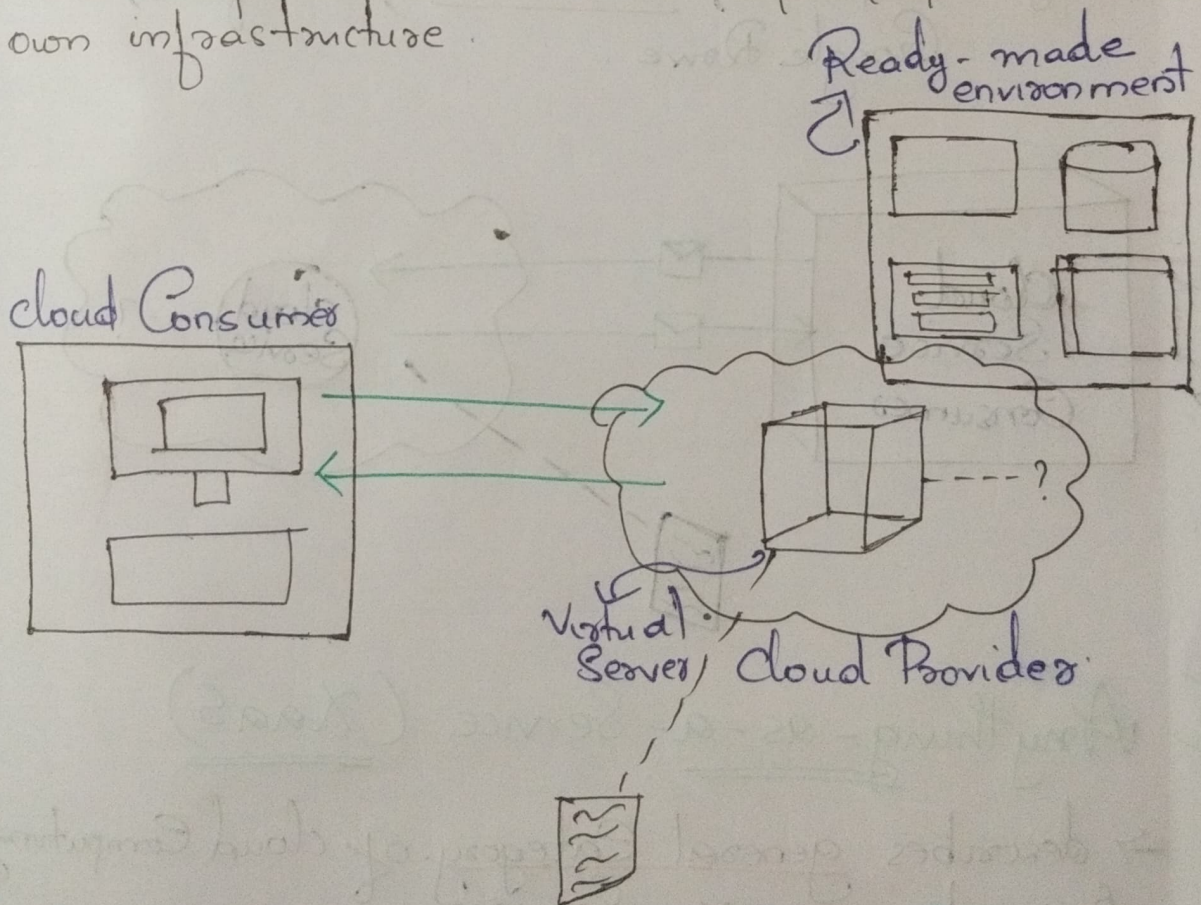 own infrastructure.
Ready-made
environment
Cloud Consumer
?
Virtual
Server
Cloud Provider